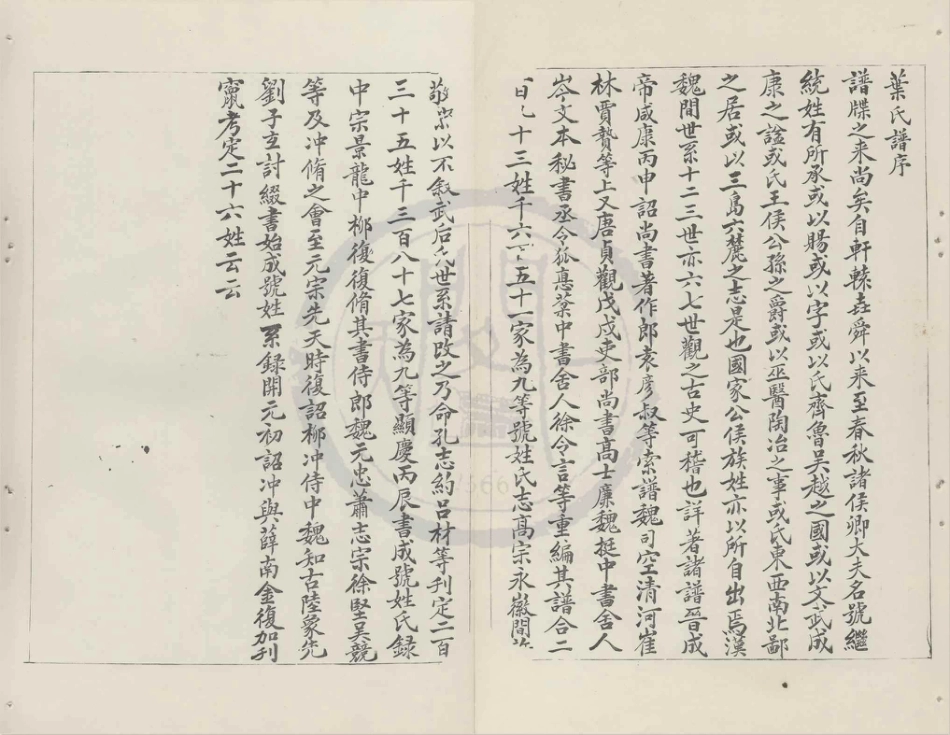 葉氏譜序
譜牒之来尚矣自軒轅垚舜以来至春秋諸侯卿大夫名號繼
統姓有所承或以賜或以字或以氏齊魯吴越之國或以文武成
康之謚或氏王侯公孫之爵或以巫醫陶冶之事或氏東西南北鄙
之居或以三島六麓之志是也國家公侯族姓亦以所自出焉漢
魏間世系十二三世亦六七世觀之古史可稽也詳著諸譜晉成
帝咸康丙申詔尚書著作郎袁彦叔等索譜魏司空清河崔
林賈贄等上又唐貞觀戊戌吏部尚書髙士廉魏挺中書舍人
岑文本秘書丞令狐悳葉中書舍人徐令言等重編其譜合二
十三姓千六五十一家為九等號姓氏志髙宗永徽間
敬宗以不叙武后世系請改之乃命孔志約吕材等刊定二百
三十五姓千三百八十七家為九等顯慶丙辰書成號姓氏録
中宗景龍中柳復復脩其書侍郎魏元忠蕭志宗徐堅吴競
等及冲脩之會至元宗先天時復詔柳冲侍中魏知古陸象先
劉子玄討綴書始成號姓系録開元初詔冲與薛南金復加刋
竄考定二十六姓云云